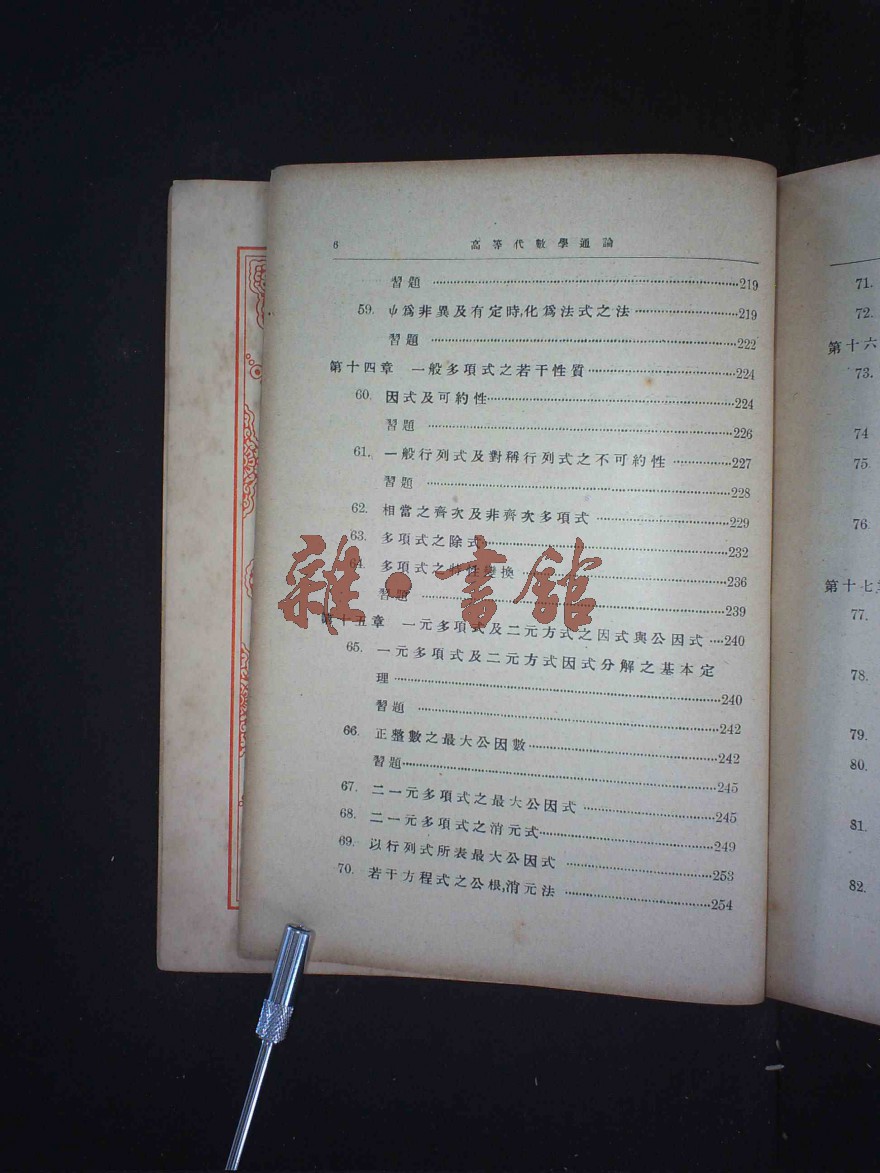 6 高等代數學通論
習題 ……219
59. ψ爲非異及有定時,化爲法式之法 ……219
習題 ……222
第十四章 一般多項式之若干性質 ……224
60. 因式及可約性 ……224
習題 ……226
61. 一般行列式及對稱行列式之不可約性 ……227
習題 ……228
62. 相當之齊次及非齊次多項式 ……229
63. 多項式之除式 ……232
64. 多項式之特性變換 ……236
習題 ……239
第十五章 一元多項式及二元方式之因式與公因式 ……240
65. 一元多項式及二元方式因式分解之基本定
理 ……240
習題 ……242
66. 正整數之最大公因數 ……242
習題 ……245
67. 二一元多項式之最大公因式 ……245
68. 二一元多項式之消元式 ……249
69. 以行列式所表最大公因式 ……253
70. 若干方程式之公根,消元法 ……254
雜·書館
71.
72.
第十六
73.
74
75.
76.
第十七
77.
78.
79.
80.
81.
82.